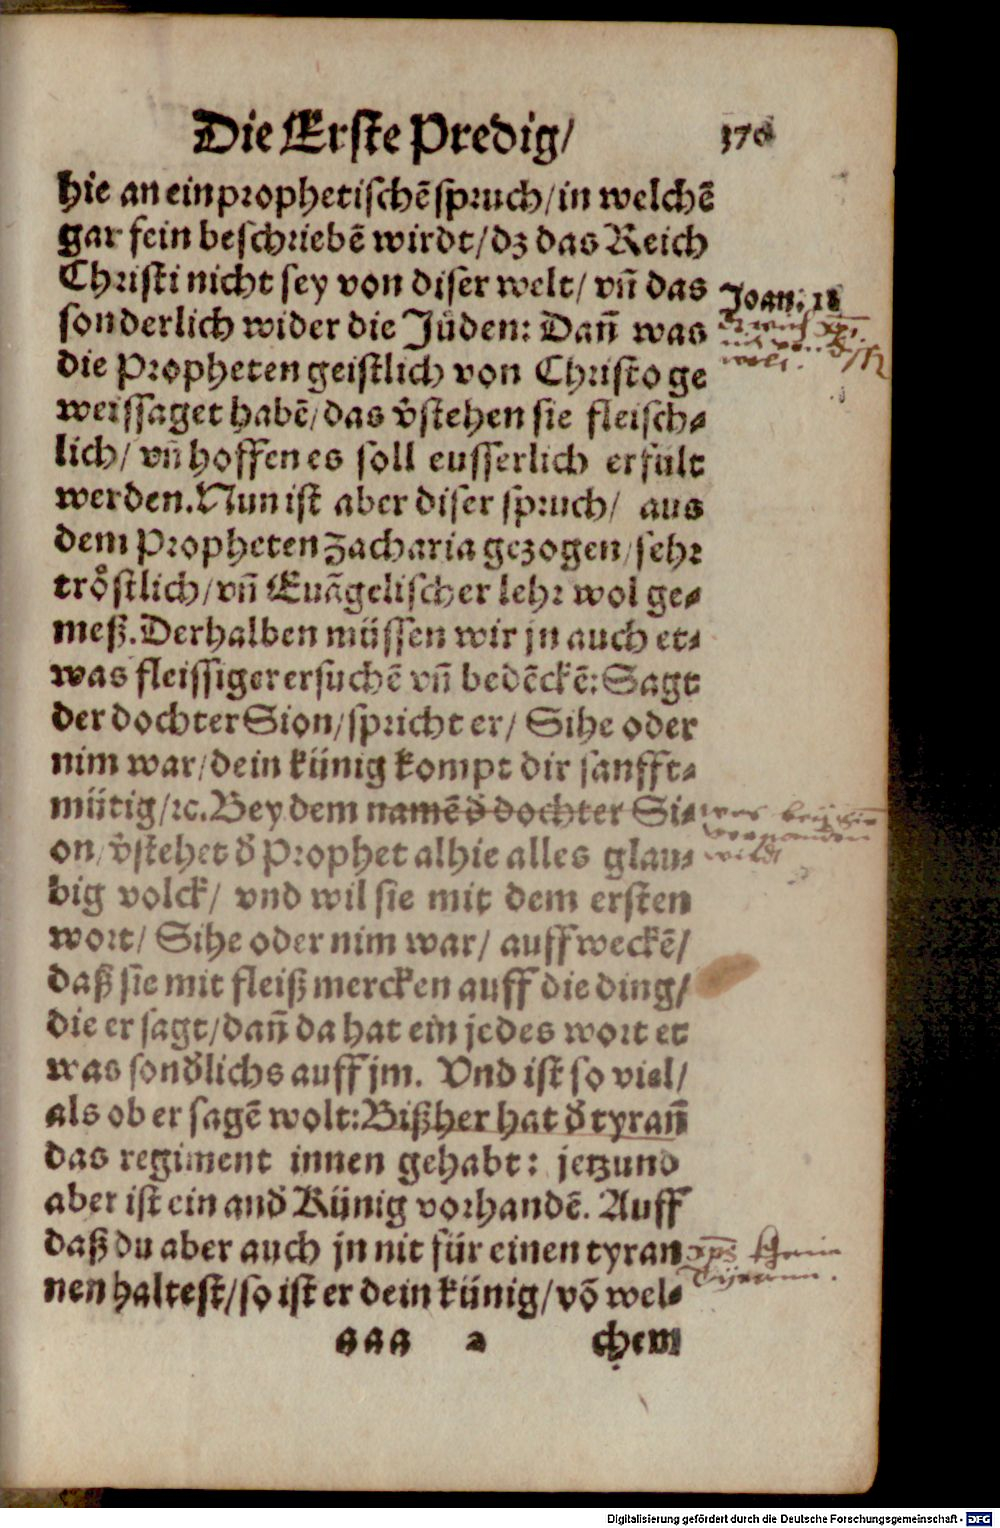 Die Erste Predig/ 370
hie an ein prophetischē spruch/ in welchē
gar fein beschriebē wirdt/ dz das Reich
Christi nicht sey von diser welt/ vn̄ das
Joan. 18
sonderlich wider die Jüden: Dan̄ was
die Propheten geistlich von Christo ge
weissaget habē/ das v̊stehen sie fleisch⸗
lich/ vn̄ hoffen es soll eusserlich erfült
werden. Nun ist aber diser spruch/ aus
dem Propheten Zacharia gezogen/ sehr
trȍstlich/ vn̄ Euāgelischer lehr wol ge⸗
meß. Derhalben müssen wir jn auch et⸗
was fleissiger ersuchē vn̄ bedēckē: Sagt
der dochter Sion/ spricht er/ Sihe oder
nim war/ dein künig kompt dir sanfft⸗
mütig/ ꝛc. Bey dem namē d̊ dochter Si⸗
on/ v̊stehet d̊ Prophet alhie alles glau⸗
big volck/ vnd wil sie mit dem ersten
wort/ Sihe oder nim war/ auffweckē/
daß sie mit fleiß mercken auff die ding/
die er sagt/ dan̄ da hat ein jedes wort et
was sond̊lichs auff jm. Vnd ist so viel/
als ob er sagē wolt: Bißher hat d̊ tyran̄
das regiment innen gehabt: jetzund
aber ist ein and̊ Künig vorhandē. Auff
daß du aber auch jn nit für einen tyran
xps kein
Tyrann.
nen haltest/ so ist er dein künig/ vō wel⸗
aaa 2 chem
Digitalisierung gefördert durch die Deutsche Forschungsgemeinschaft - DFG